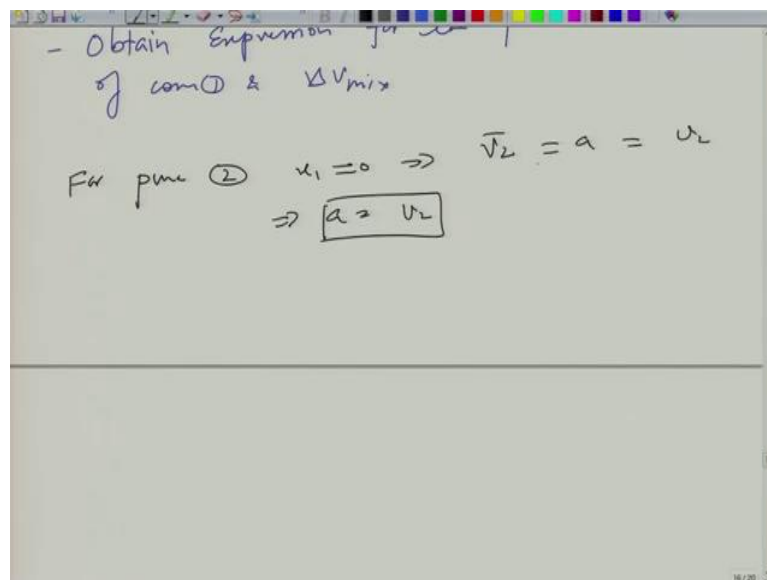 - Obtain Expression for
of com① & ΔVmix
For pure ② x₁ = 0 ⇒ V̅₂ = a = v₂
⇒ a = v₂
16 / 20